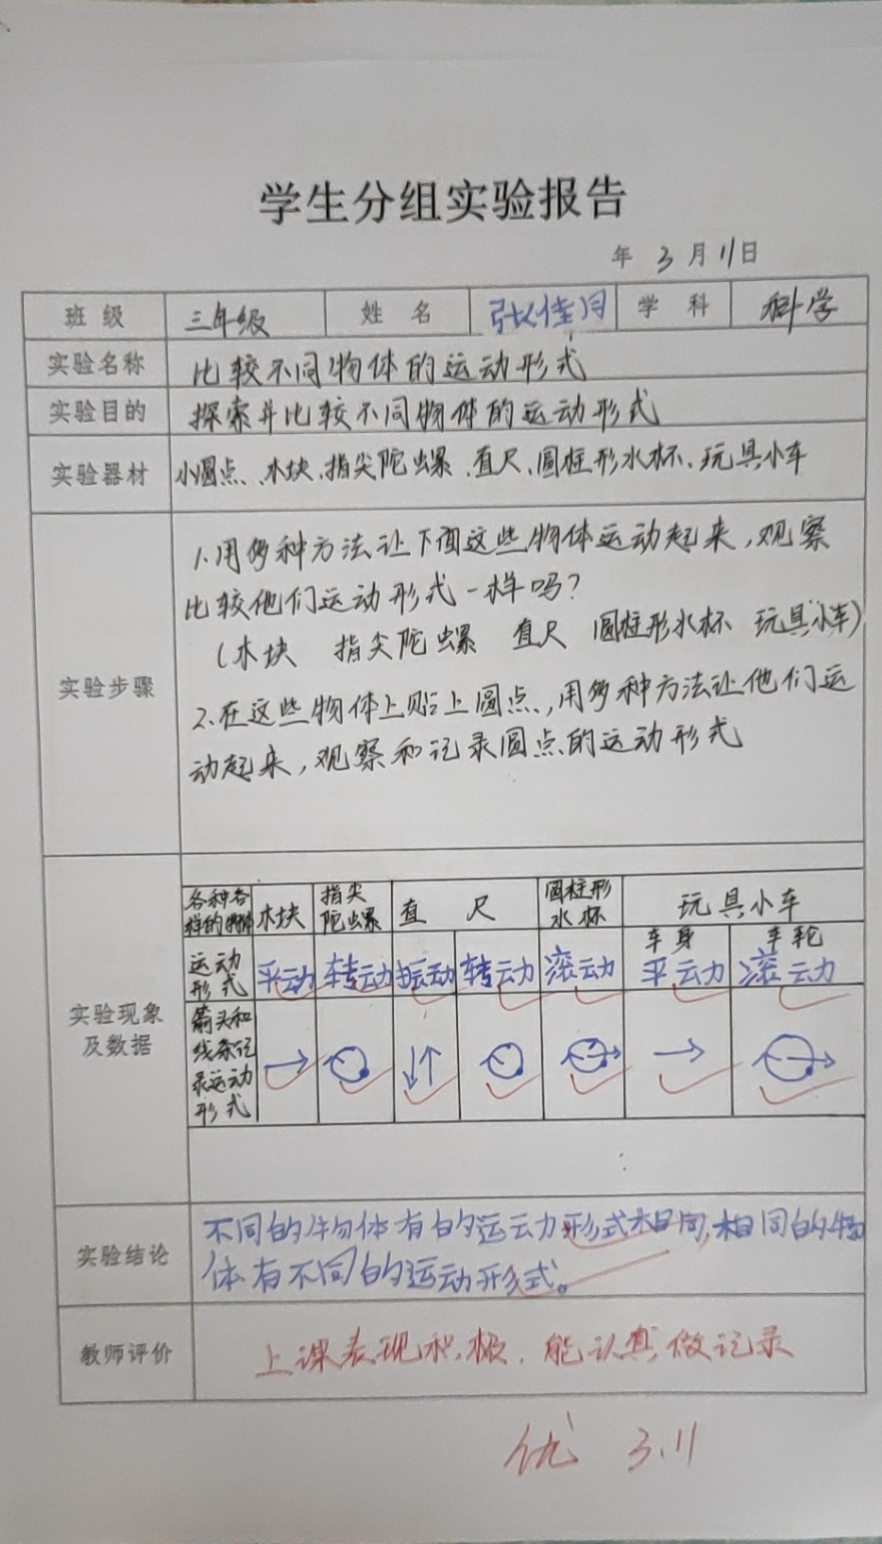 学生分组实验报告
年 3 月 11日
班 级 三年级 姓 名 张佳同 学 科 科学
实验名称 比较不同物体的运动形式
实验目的 探索并比较不同物体的运动形式
实验器材 小圆点、木块、指尖陀螺、直尺、圆柱形水杯、玩具小车
实验步骤
1.用多种方法让下面这些物体运动起来,观察
比较他们运动形式一样吗?
(木块 指尖陀螺 直尺 圆柱形水杯 玩具小车)
2.在这些物体上贴上圆点,用多种方法让他们运
动起来,观察和记录圆点的运动形式
实验现象
及数据
各种各
样的物体
木块
指尖
陀螺
直 尺
圆柱形
水杯
玩具小车
车身 车轮
运动
形式
平动 转动 振动 转动 滚动 平动 滚动
箭头和
线条记
录运动
形式
实验结论
不同的物体有的运动形式相同,相同的物
体有不同的运动形式。
教师评价 上课表现积极,能认真做记录
优 3.11